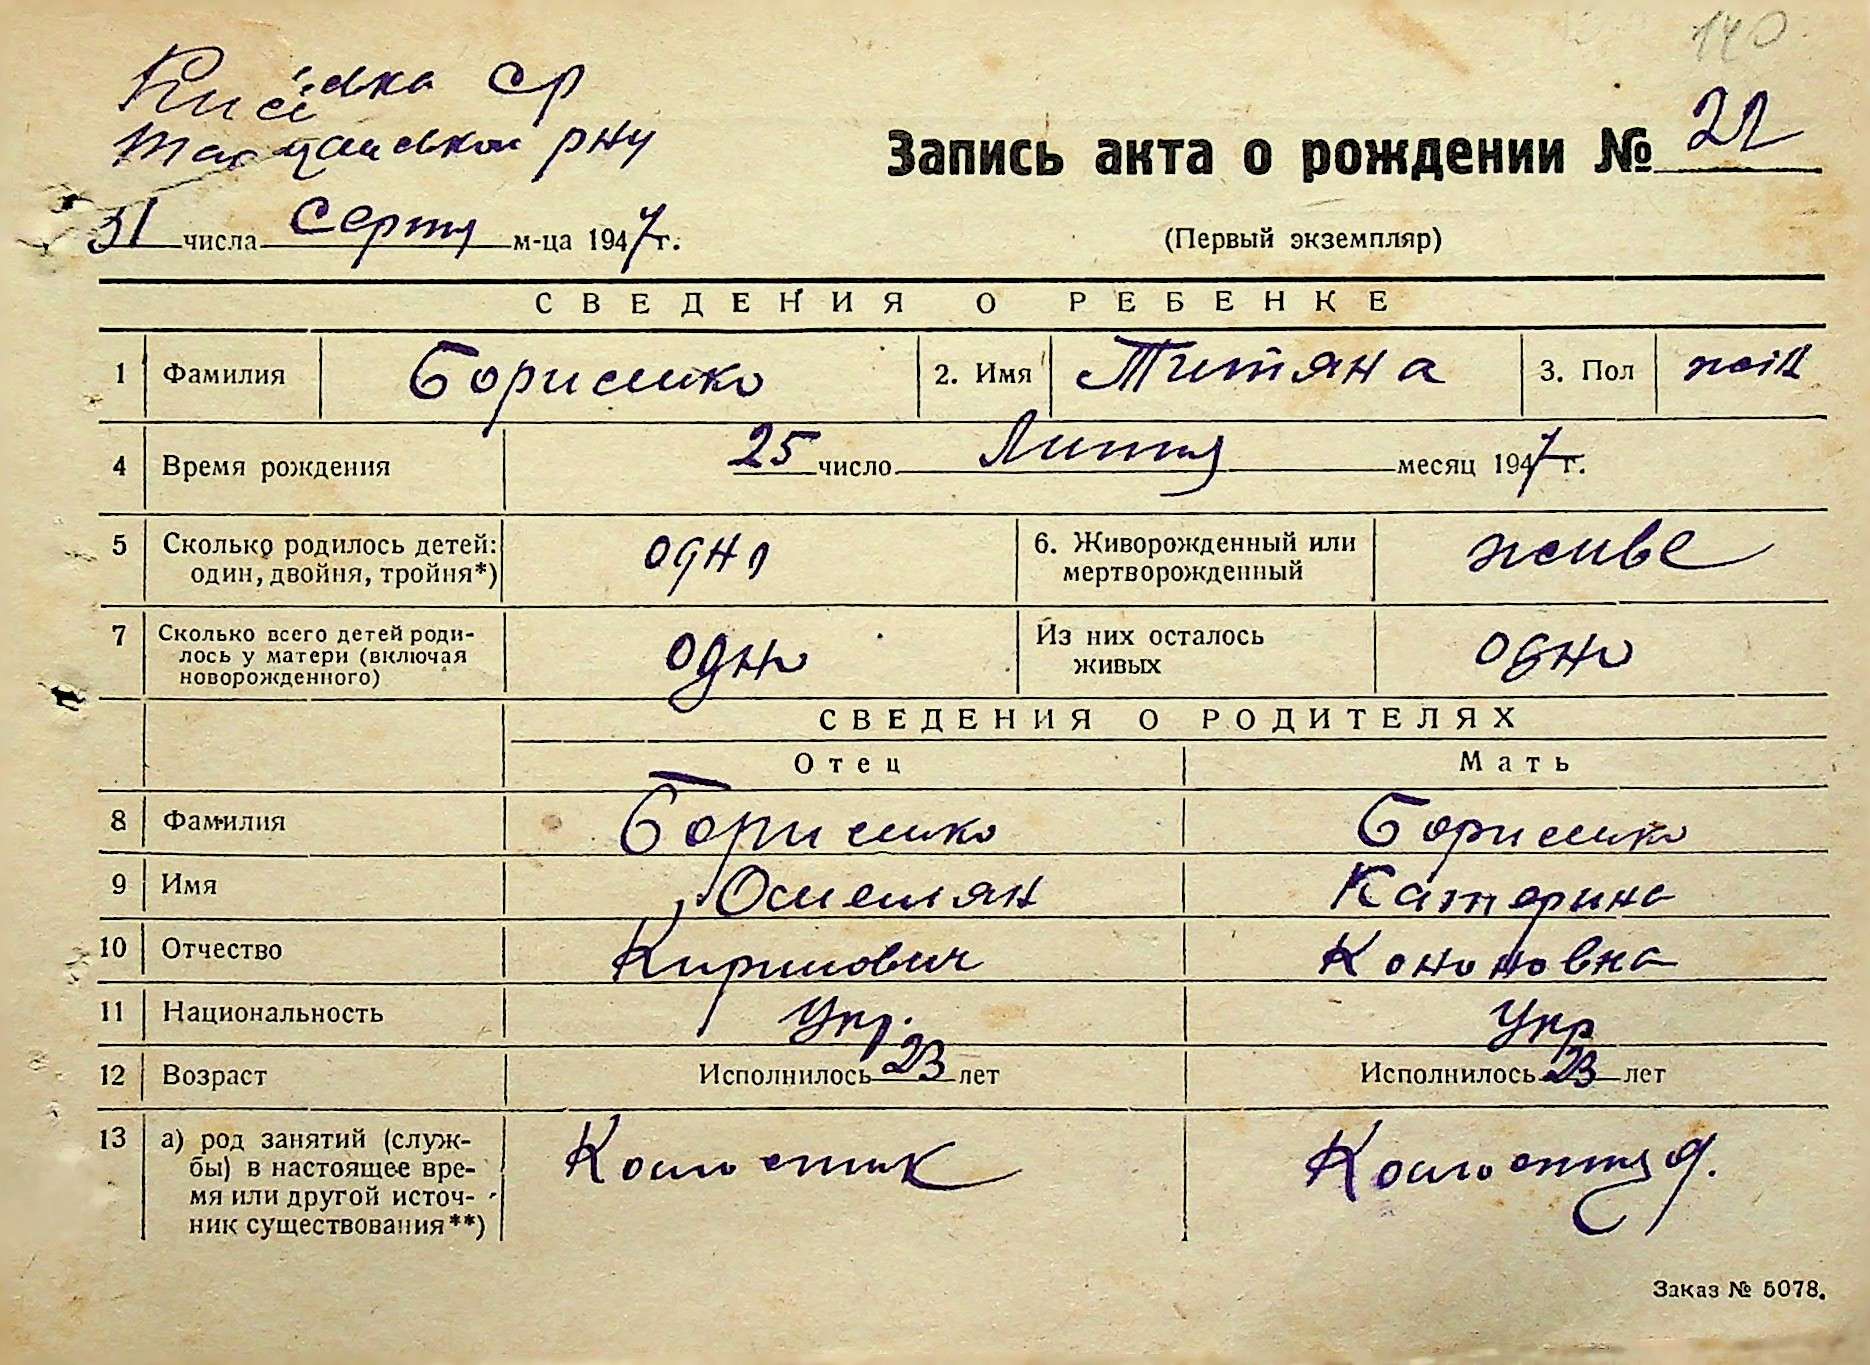 140
ска СР
Запись акта о рождении № 22
31 числа Серпня м-ца 1947 г.
(Первый экземпляр)
СВЕДЕНИЯ О РЕБЕНКЕ
1 Фамилия Борисенко 2. Имя Титяна 3. Пол жін
4 Время рождения 25 число Липня месяц 1947 г.
5 Сколько родилось детей: одно 6. Живорожденный или живе
один, двойня, тройня*) мертворожденный
7 Сколько всего детей роди- одно Из них осталось одно
лось у матери (включая живых
новорожденного)
СВЕДЕНИЯ О РОДИТЕЛЯХ
Отец Мать
8 Фамилия Борисенко Борисенко
9 Имя Омелян Катерина
10 Отчество Кирилович Кононовна
11 Национальность Укр. Укр
12 Возраст Исполнилось 23 лет Исполнилось 23 лет
13 а) род занятий (служ-
бы) в настоящее вре-
мя или другой источ-
ник существования**)
Заказ № 5078.